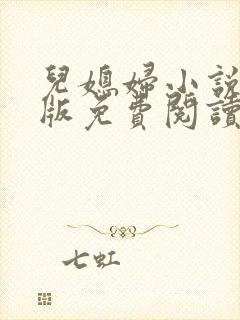 兒媳婦小說
版免費閱讀
七虹